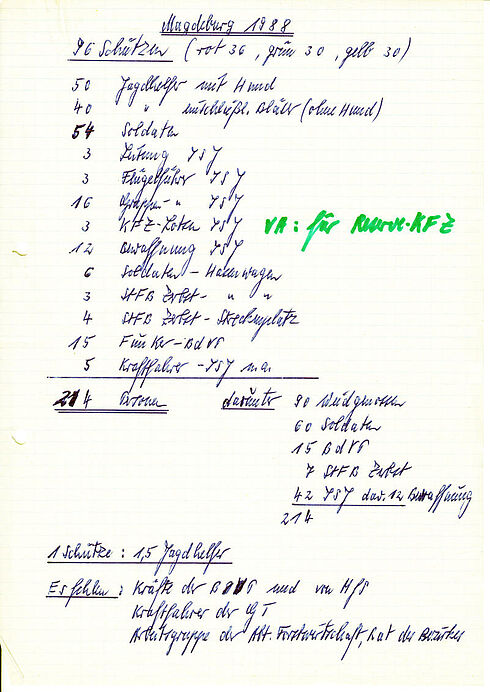 Magdeburg 1988
96 Schützen (rot 36, grün 30, gelb 30)
50 Jagdhelfer mit Hund
40 " einschließl. Bläser (ohne Hund)
54 Soldaten
3 Leitung ISJ
3 Flügelführer ISJ
16 Gruppen- " ISJ
3 KFZ-Lotsen ISJ VA: für Reserve-KFZ
12 Bewaffnung ISJ
6 Soldaten - Hasenwagen
3 StFB Zerbst - " "
4 StFB Zerbst - Streckenplatz
15 Funker - BdVP
5 Kraftfahrer - ISJ
214 Personen darunter 90 Weidgenossen
60 Soldaten
15 BdVP
7 StFB Zerbst
42 ISJ dav. 12 Bewaffnung
214
1 Schütze : 1,5 Jagdhelfer
Es fehlen : Kräfte der BdVP und von
Kraftfahrer der
Arbeitsgruppe der Abt. Forstwirtschaft, Rat des Bezirkes